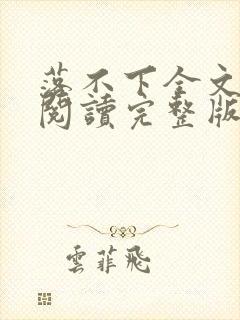 落不下全文
閱讀完整版
雲菲飛